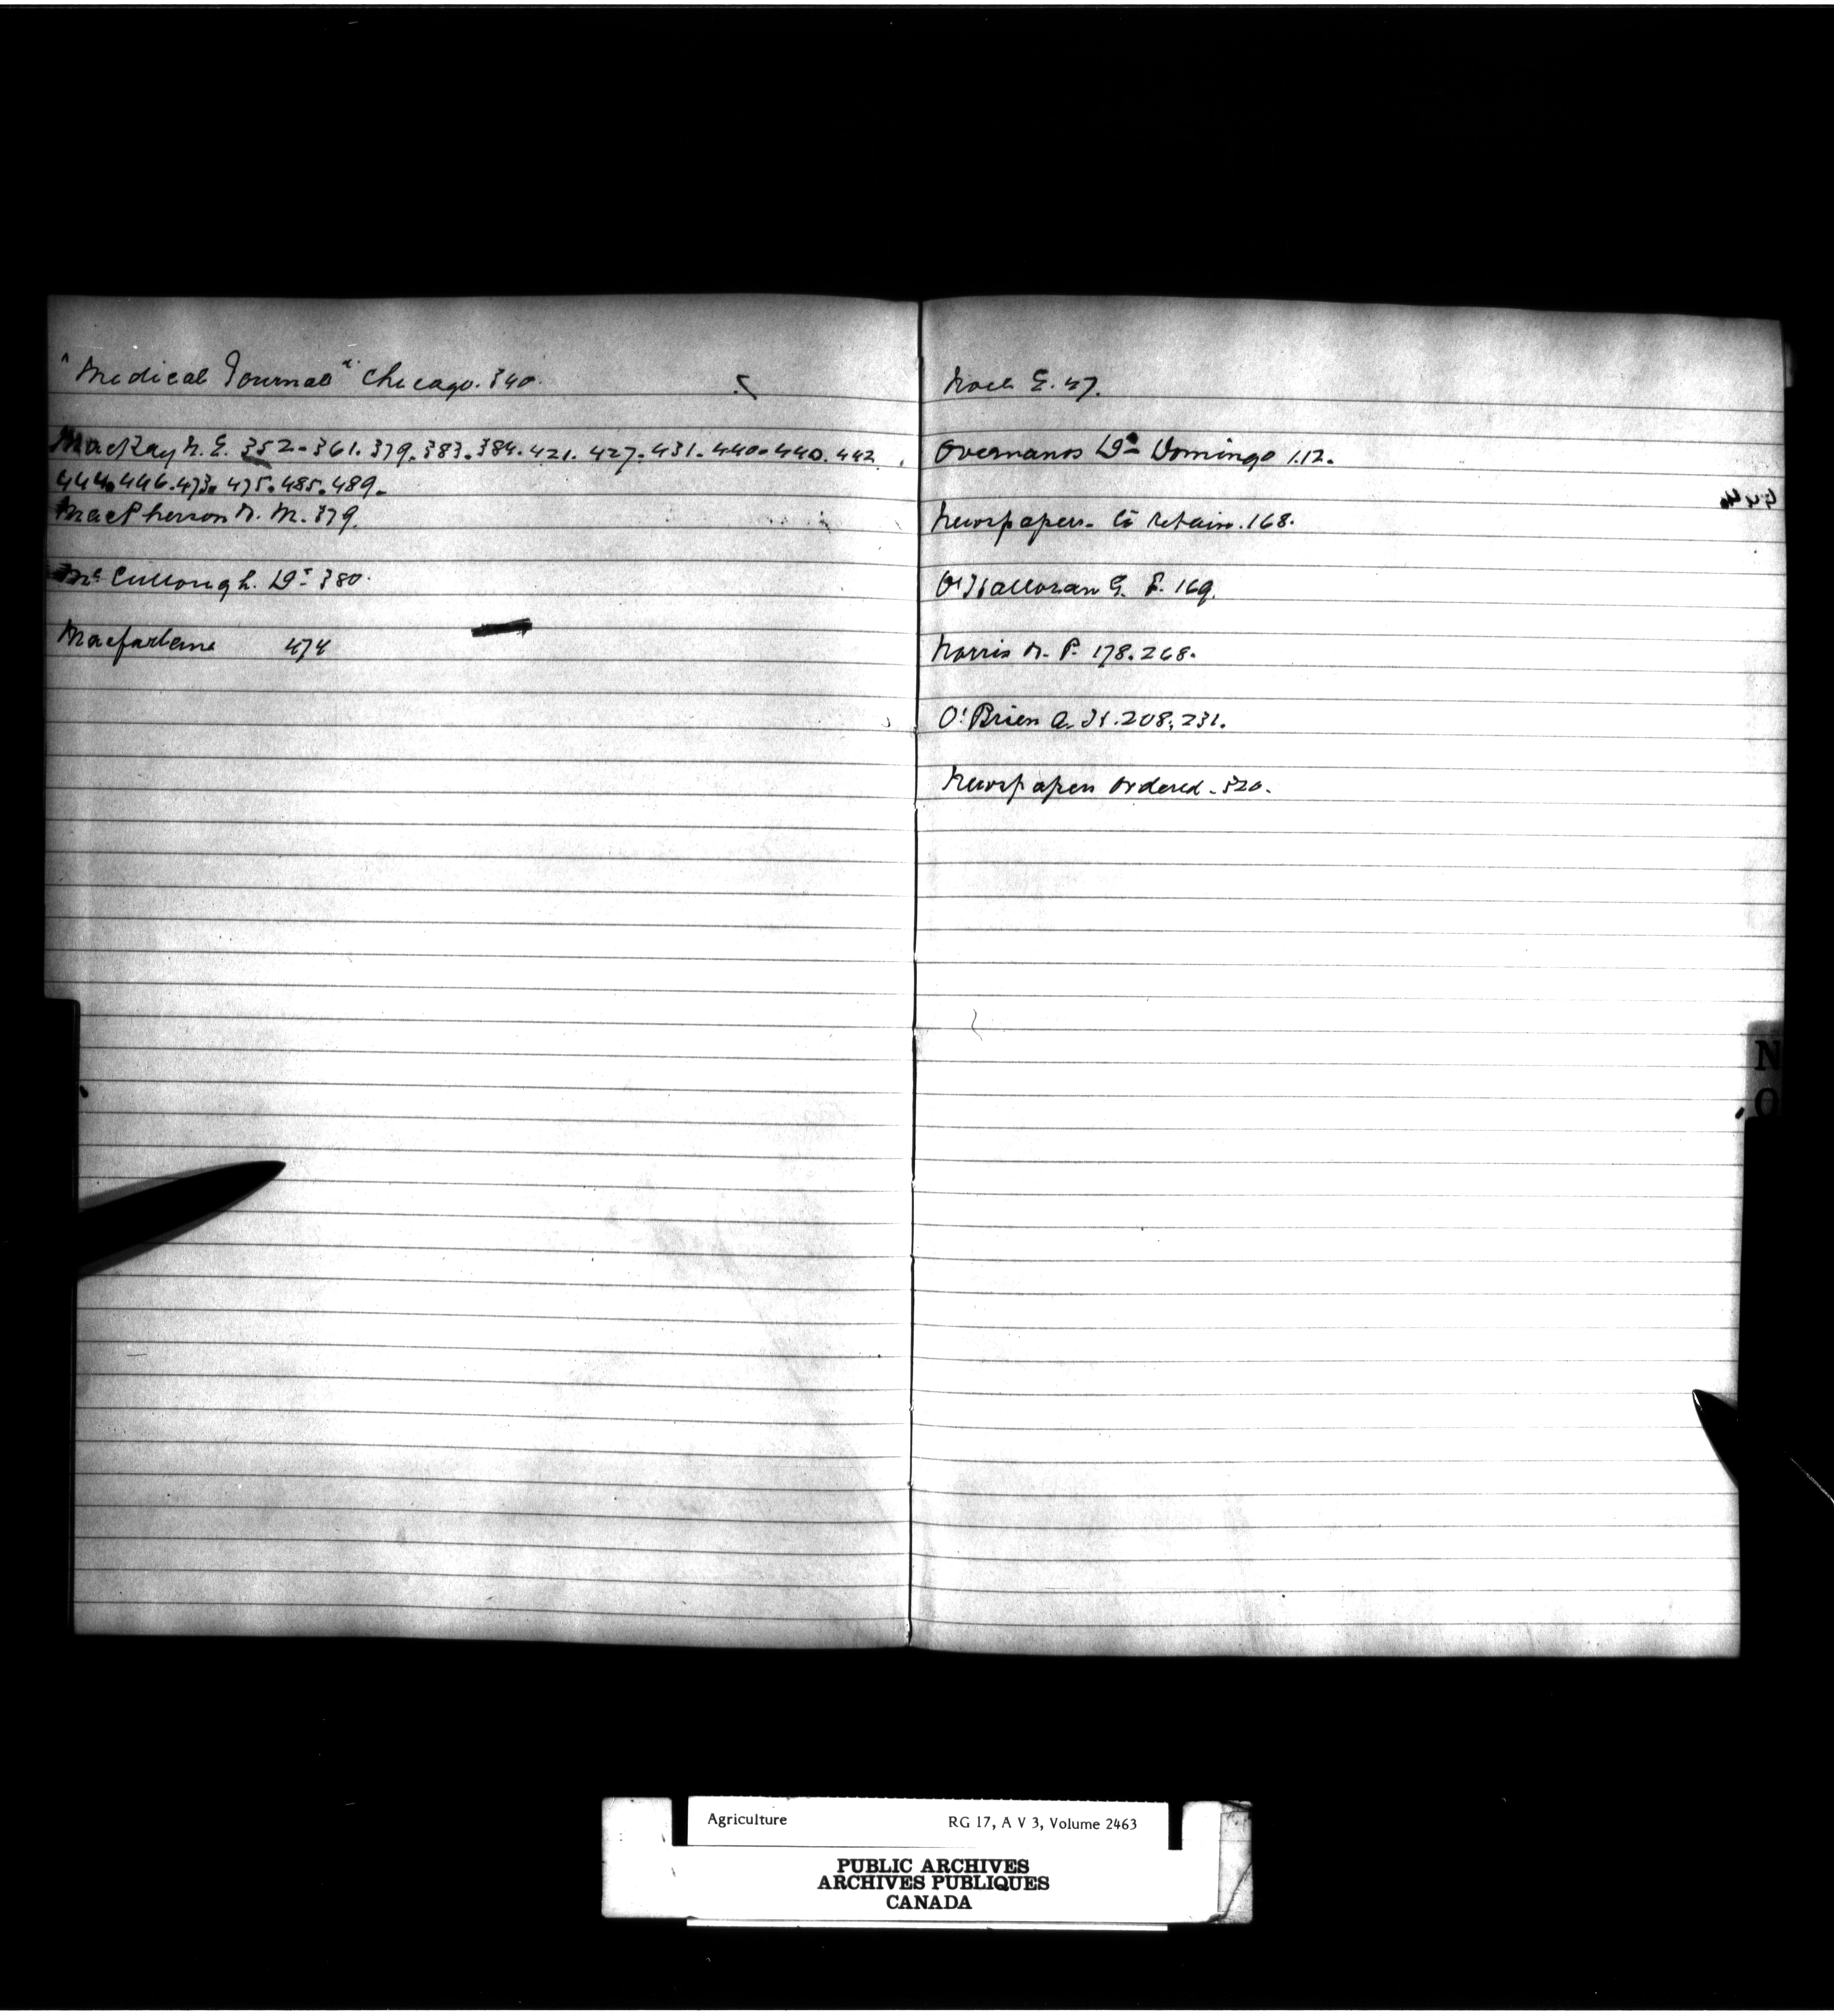 "Medical Journal" Chicago. 340.
MacKay N. E. 352-361. 379. 383. 384. 421. 427. 431. 440. 440. 442.
444. 446. 473. 475. 485. 489.
MacPherson D. M. 379.
Mc Cullough. Dr 380.
Macfarlane 474
Noel E. 47.
Overmanos Dn Domingo 1.12.
Newspapers. to retain. 168.
O'Halloran G. F. 169.
Norris D. P. 178. 268.
O'Brien A. H. 208. 231.
Newspapers ordered. 320.
N
O
Agriculture RG 17, A V 3, Volume 2463
PUBLIC ARCHIVES
ARCHIVES PUBLIQUES
CANADA